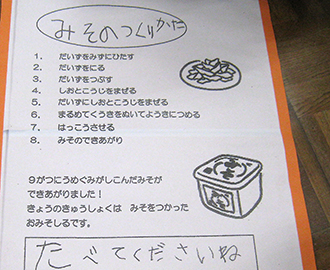 みそのつくりかた
1. だいずをみずにひたす
2. だいずをにる
3. だいずをつぶす
4. しおとこうじをまぜる
5. だいずにしおとこうじをまぜる
6. まるめてくうきをぬいてようきにつめる
7. はっこうさせる
8. みそのできあがり
9がつにうめぐみがしこんだみそが
できあがりました！
きょうのきゅうしょくは みそをつかった
おみそしるです。
たべてくださいね